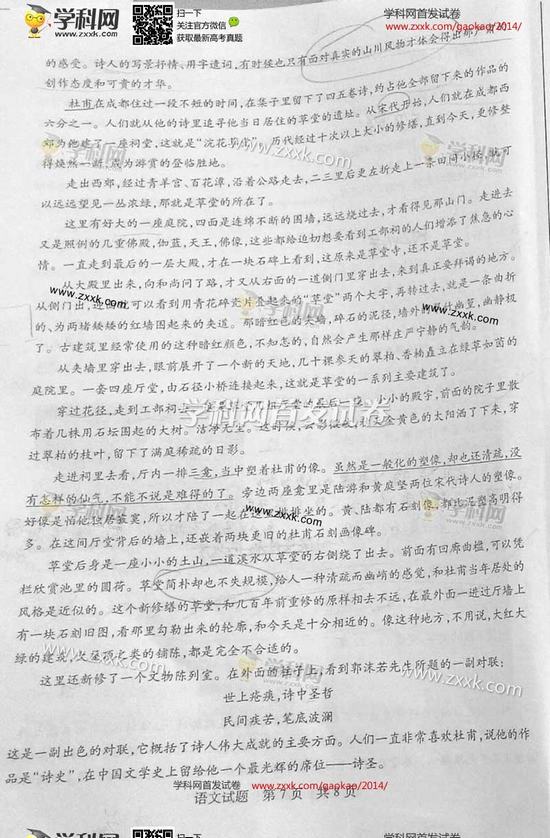 学科网
www.zxxk.com
扫一扫
关注官方微信
获取最新高考真题
学科网首发试卷
www.zxxk.com/gaokao/2014/
的感受。诗人的写景抒情、用字遣词，有时候也只有面对真实的山川风物才体会得出那
创作态度和可贵的才华。
杜甫在成都住过一段不短的时间，在集子里留下了四五卷诗，约占他全部留下来的作品的
六分之一。人们就从他的诗里追寻他当日居住的草堂的遗址。从宋代开始，人们就在成都西
郊为他建了一座祠堂，这就是“浣花草堂”。历代经过十次以上大小的修缮，直到今天，更修整
得焕然一新，成为游赏的登临胜地。
走出西郊，经过青羊宫、百花潭，沿着公路走去，二三里后更左折走上一条田间小埂，就可
以远远望见一丛浓绿，那就是草堂的所在了。
这里有好大的一座庭院，四面是连绵不断的围墙，远远绕过去，才看得见那山门。走进去
又是照例的几重佛殿，伽蓝，天王，佛像，这些都给迫切想要看到工部祠的人们增添了焦急的心
情。一直走到最后的一层大殿，才在一块石碑上看到，这原来是草堂寺，还不是草堂。
从大殿里出来，向和尚问了路，才又从右面的一道侧门里穿出去，来到真正要拜谒的地方。
从侧门出，迎面就可以看到用青花碎瓷片叠起来的“草堂”两个大字，再转过去，就是一条曲折
的、为两堵矮矮的红墙围起来的夹道。那暗红色的夹墙，碎石的泥径，墙外的修竹幽篁，幽静极
了。古建筑里经常使用的这种暗红颜色，不知怎的，自然会产生那样庄严宁静的气韵。
从夹墙里穿出去，眼前展开了一个新的天地，几十棵参天的翠柏、香楠矗立在绿草如茵的
庭院里。一套四座厅堂，由石径小桥连接起来，这就是草堂的一系列主要建筑了。
穿过花径，走到工部祠
小的殿宇，前面的院子里散
布着几株用石坛图起的大树。洁净无尘。这时候，
金黄色的太阳洒了下来，穿
过翠柏的枝叶，留下了满庭稀疏的日影。
走进祠里去看，厅内一排三龛，当中塑着杜甫的像。虽然是一般化的塑像，却也还清疏，没
有怎样的仙气，不能不说是难得的了。旁边两座龛里是陆游和黄庭坚两位宋代诗人的塑像。
好像是怕他独居寂寞，所以才陪了一起在这里排排坐的。黄、陆都有石刻像，都比泥塑高明得
多。在这间厅堂背后的墙上，还嵌着两块更旧的杜甫石刻画像碑。
草堂后身是一座小小的土山，一道溪水从草堂的右侧绕了出去。前面有回廊曲槛，可以凭
栏欣赏池里的圆荷。草堂简朴却也不失规模，给人一种清疏而幽峭的感觉，和杜甫当年居处的
风格是近似的。这个新修缮的草堂，和几百年前重修的原样相去不远，在最外面一进过厅墙上
有一块石刻旧图，看那里勾勒出来的轮廓，和今天是十分相近的。像这种地方，不用说，大红大
绿的建筑，
之类的铺陈，都是完全不合适的。
这里还新修了一个文物陈列室。在外面的柱子上，看到郭沫若先生所题的一副对联：
世上疮痍，诗中圣哲
民间疾苦，笔底波澜
这是一副出色的对联，它概括了诗人伟大成就的主要方面。人们一直非常喜欢杜甫，说他的作
品是“诗史”，在中国文学史上留给他一个最光辉的席位——诗圣。
学科网首发试卷
www.zxxk.com/gaokao/2014/
语文试题 第7页 共8页
学科网
扫一扫
学科网首发试卷